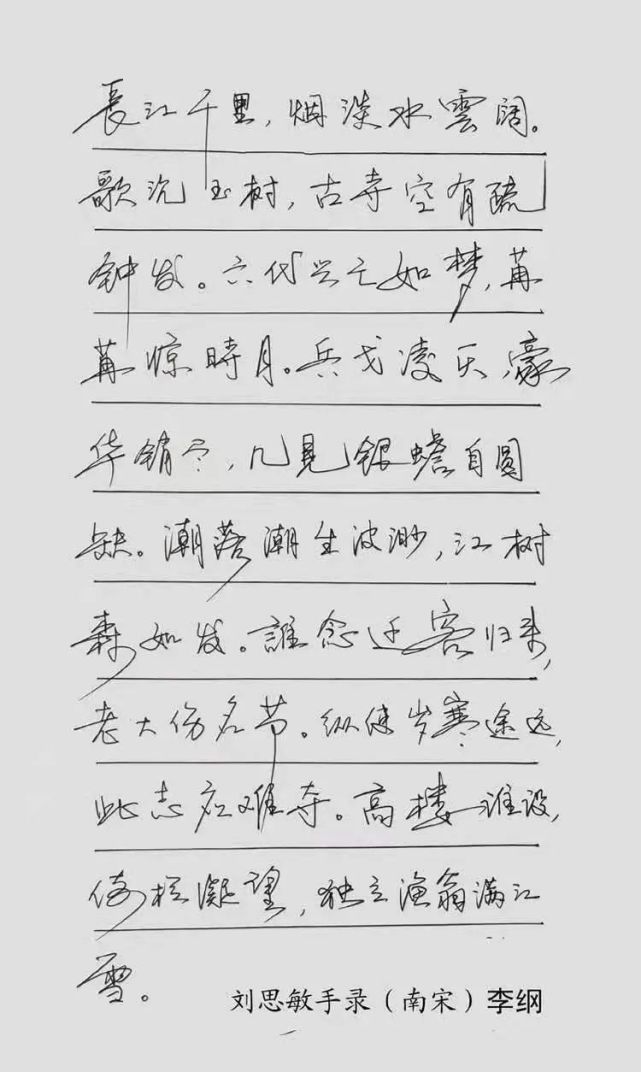 長江千里，烟淡水雲阔。
歌沉玉树，古寺空有疏
钟发。六代兴亡如梦，苒
苒惊時月。兵戈凌灭，豪
华销尽，几見银蟾自圆
缺。潮落潮生波渺，江树
森如发。誰念迁客归来，
老大伤名节。纵使岁寒途远，
此志应难夺。高楼谁设，
倚栏凝望，独立渔翁满江
雪。
刘思敏手录（南宋）李纲